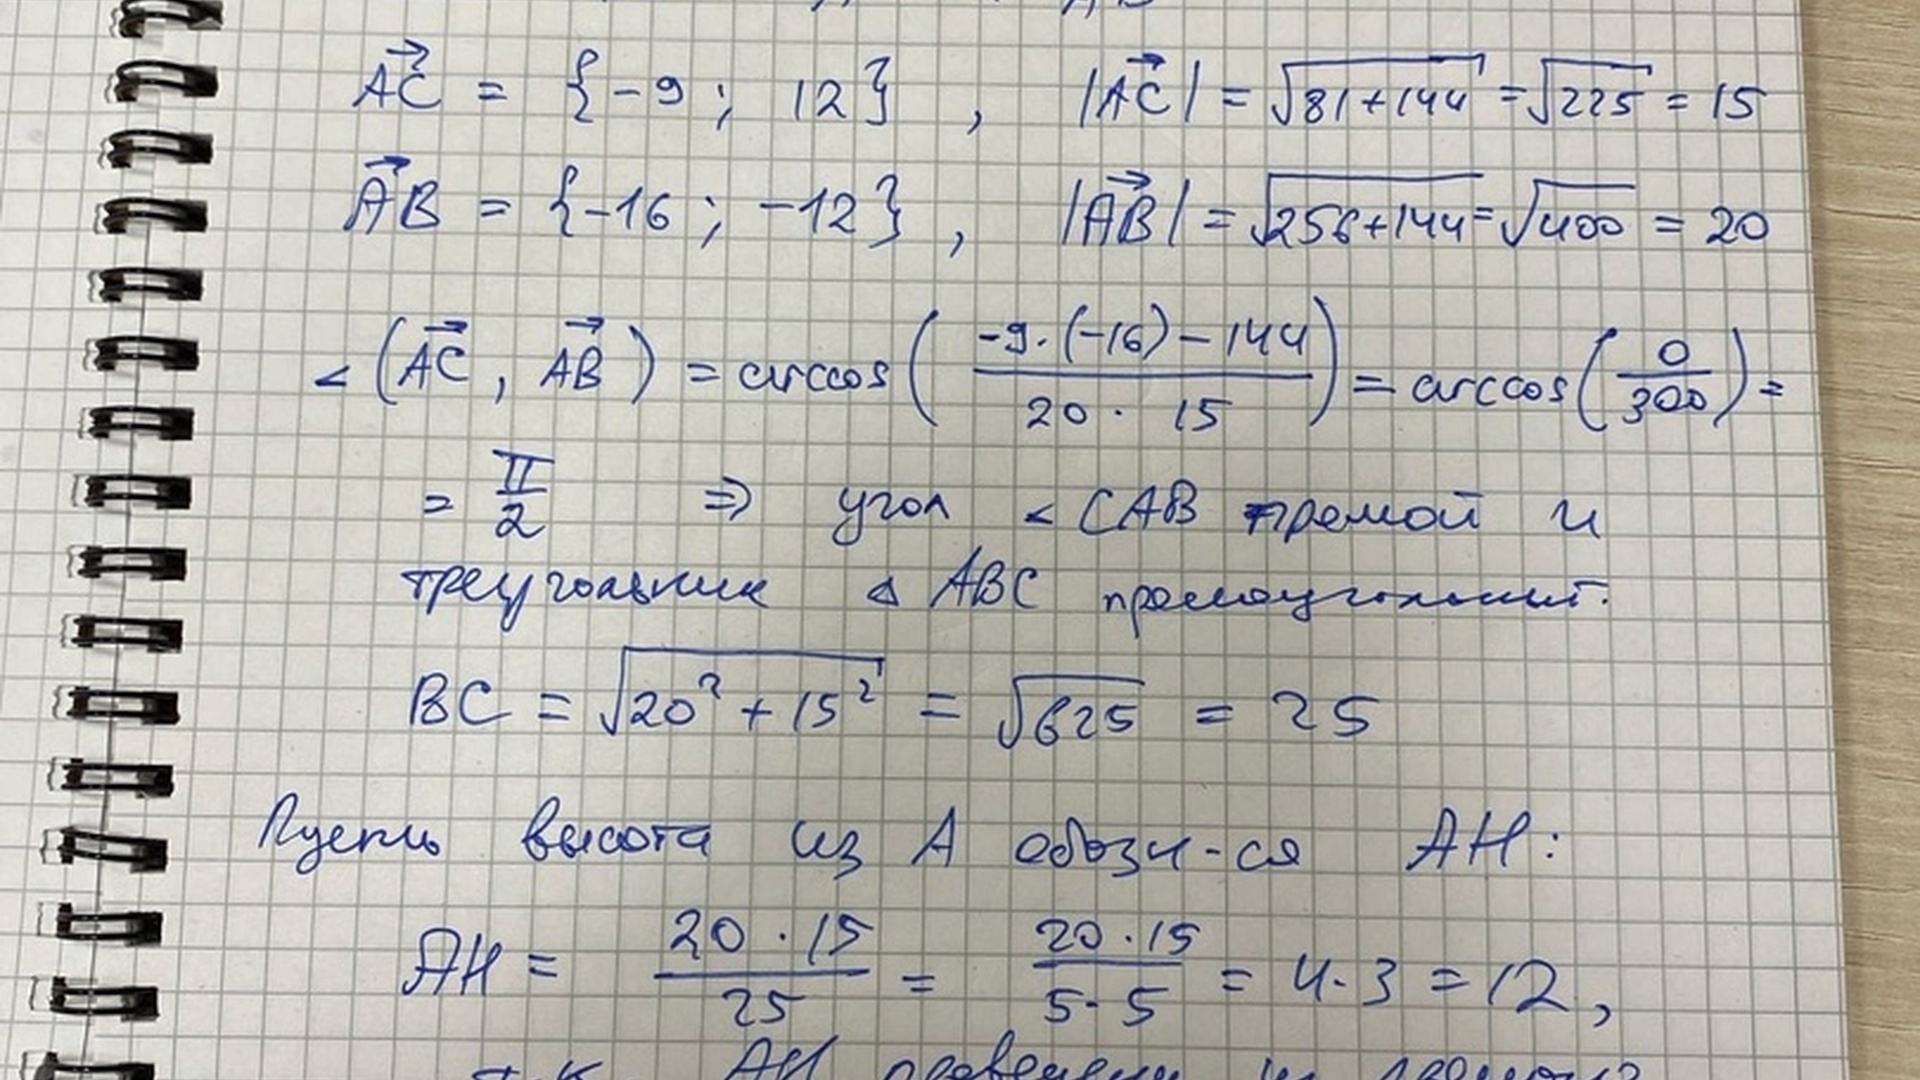 AC = {-9; 12}, |AC| = √81+144 = √225 = 15
AB = {-16; -12}, |AB| = √256+144 = √400 = 20
∠(AC, AB) = arccos(-9·(-16)-144 / 20·15) = arccos(0/300) =
= π/2 ⇒ угол ∠CAB прямой и
треугольник △ABC прямоугольный.
BC = √20²+15² = √625 = 25
Пусть высота из A обозн-ся AH:
AH = 20·15/25 = 20·15/5·5 = 4·3 = 12,
т.к. AH проведена из прямого